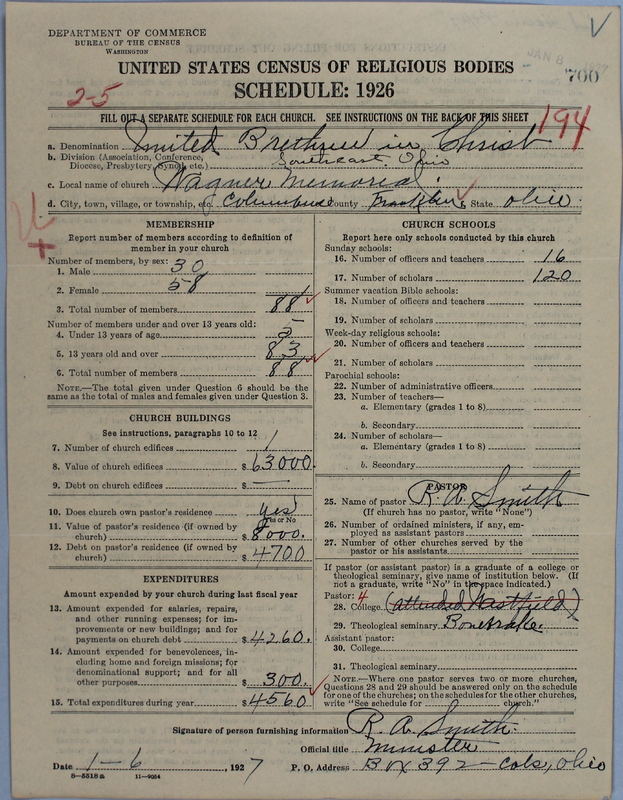 DEPARTMENT OF COMMERCE
BUREAU OF THE CENSUS
WASHINGTON
JAN 8 1927
UNITED STATES CENSUS OF RELIGIOUS BODIES
700
SCHEDULE: 1926
2-5
FILL OUT A SEPARATE SCHEDULE FOR EACH CHURCH. SEE INSTRUCTIONS ON THE BACK OF THIS SHEET
194
a. Denomination United Brethren in Christ
b. Division (Association, Conference, Diocese, Presbytery, Synod, etc.) Southeast Ohio
c. Local name of church Wagner Memorial
d. City, town, village, or township, etc. Columbus County Franklin State Ohio
MEMBERSHIP
Report number of members according to definition of member in your church
Number of members, by sex:
1. Male 30
2. Female 58
3. Total number of members 88
Number of members under and over 13 years old:
4. Under 13 years of age 5
5. 13 years old and over 83
6. Total number of members 88
NOTE.—The total given under Question 6 should be the same as the total of males and females given under Question 3.
CHURCH BUILDINGS
See instructions, paragraphs 10 to 12
7. Number of church edifices 1
8. Value of church edifices $ 63000.
9. Debt on church edifices $ —
10. Does church own pastor's residence yes
Yes or No
11. Value of pastor's residence (if owned by church) $ 8000.
12. Debt on pastor's residence (if owned by church) $ 4700
EXPENDITURES
Amount expended by your church during last fiscal year
13. Amount expended for salaries, repairs, and other running expenses; for improvements or new buildings; and for payments on church debt $ 4260.
14. Amount expended for benevolences, including home and foreign missions; for denominational support; and for all other purposes $ 300.
15. Total expenditures during year $ 4560
CHURCH SCHOOLS
Report here only schools conducted by this church
Sunday schools:
16. Number of officers and teachers 16
17. Number of scholars 120
Summer vacation Bible schools:
18. Number of officers and teachers
19. Number of scholars
Week-day religious schools:
20. Number of officers and teachers
21. Number of scholars
Parochial schools:
22. Number of administrative officers
23. Number of teachers—
a. Elementary (grades 1 to 8)
b. Secondary
24. Number of scholars—
a. Elementary (grades 1 to 8)
b. Secondary
PASTOR
25. Name of pastor R. A. Smith
(If church has no pastor, write "None")
26. Number of ordained ministers, if any, employed as assistant pastors
27. Number of other churches served by the pastor or his assistants
If pastor (or assistant pastor) is a graduate of a college or theological seminary, give name of institution below. (If not a graduate, write "No" in the space indicated.)
Pastor: 4
28. College (attended Westfield)
29. Theological seminary Bonebrake
Assistant pastor:
30. College
31. Theological seminary
NOTE.—Where one pastor serves two or more churches, Questions 28 and 29 should be answered only on the schedule for one of the churches; on the schedules for the other churches, write "See schedule for church."
Signature of person furnishing information R. A. Smith
Official title Minister
Date 1-6, 1927 P. O. Address Box 392 - Cols, Ohio
8—5518a 11—9054